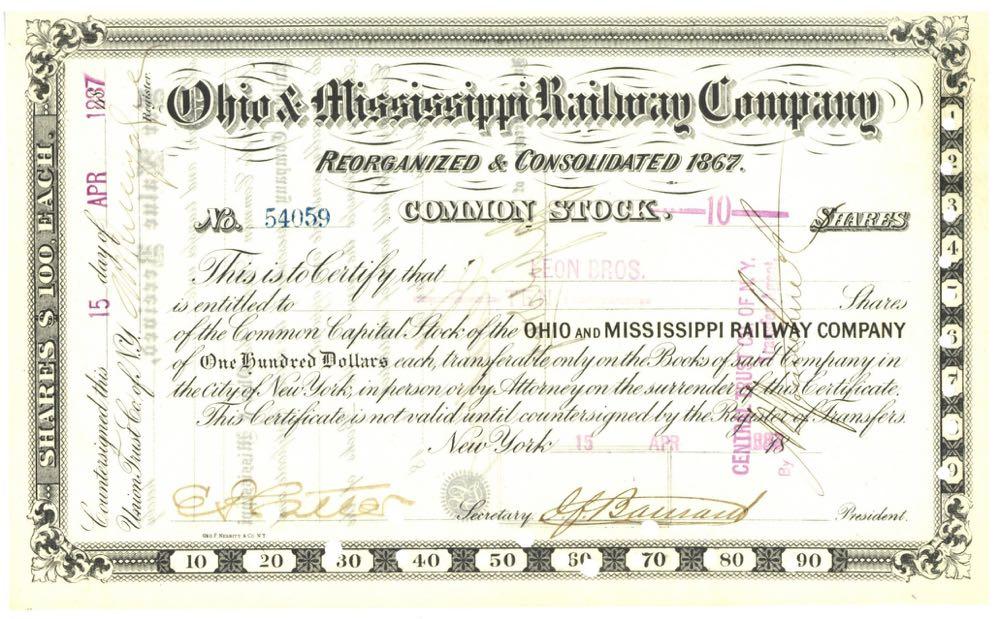 Ohio & Mississippi Railway Company
REORGANIZED & CONSOLIDATED 1867.
No. 54059 COMMON STOCK. 10 SHARES
This is to Certify that LEON BROS.
is entitled to Shares
of the Common Capital Stock of the OHIO AND MISSISSIPPI RAILWAY COMPANY
of One Hundred Dollars each, transferable only on the Books of said Company in
the city of New York, in person or by Attorney on the surrender of this Certificate.
This Certificate is not valid until countersigned by the Register of Transfers.
New York 15 APR 18
Secretary. J.F. Barnard President.
GEO F. NESBITT & CO. N.Y.
SHARES $ 100, EACH.
Countersigned this 15 day of APR 1887
Union Trust Co. of N.Y. Register.
CENTRAL TRUST CO. OF N.Y.
By
1
2
3
4
6
7
9
10 20 30 40 50 60 70 80 90